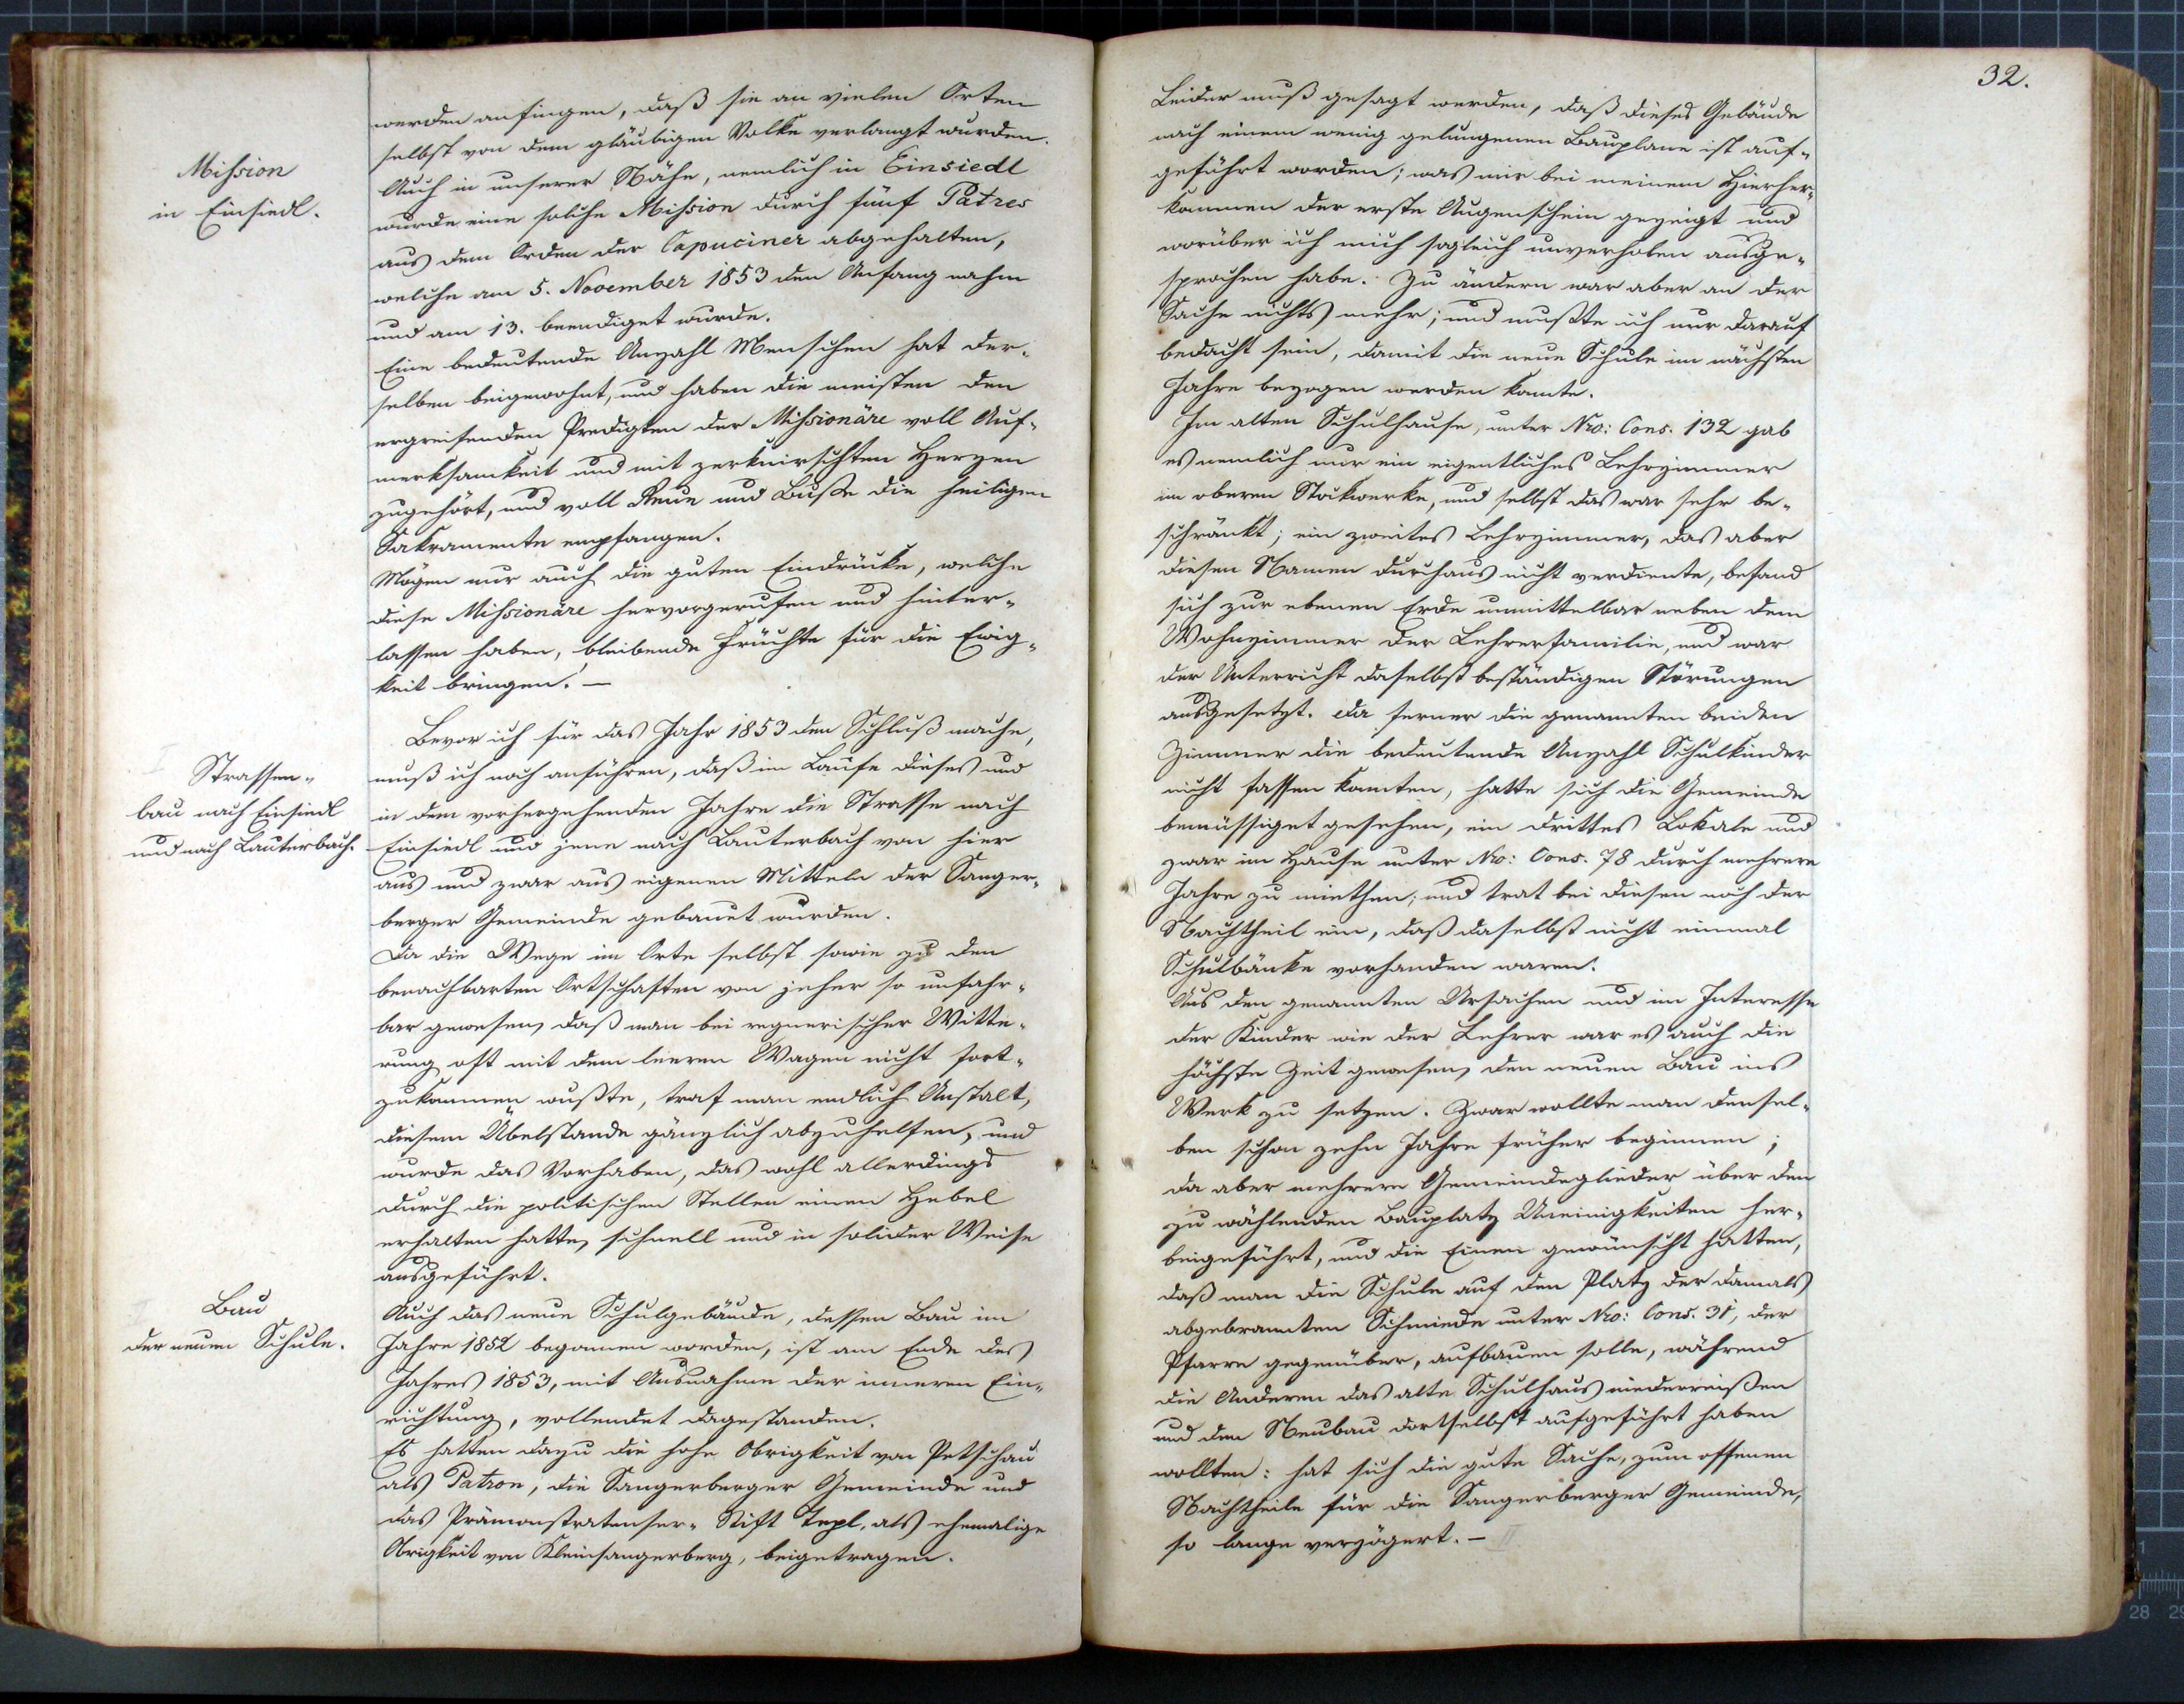 Mission
in Einsiedl.
werden anfingen, daß sie an vielen Orten
selbst von dem gläubigen Volke verlangt wurden.
Auch in unserer Nähe, nemlich in Einsiedl
wurde eine solche Mission durch fünf Patres
aus dem Orden der Capuciner abgehalten,
welche am 5. November 1853 den Anfang nahm
und am 13. beendiget wurde.
Eine bedeutende Anzahl Menschen hat der-
selben beigewohnt, und haben die meisten den
ergreifenden Predigten der Missionäre voll Auf-
merksamkeit und mit zerknirschten Herzen
zugehört, und voll Reue und Buße die heiligen
Sakramente empfangen.
Mögen nur auch die guten Eindrücke, welche
diese Missionäre hervorgerufen und hinter-
lassen haben, bleibende Früchte für die Ewig-
keit bringen! —
I
Strassen-
bau nach Einsiedl
und nach Lauterbach.
Bevor ich für das Jahr 1853 den Schluß mache,
muß ich noch anführen, daß im Laufe dieses und
in dem vorhergehenden Jahre die Strasse nach
Einsiedl und jene nach Lauterbach von hier
aus und zwar aus eigenen Mitteln der Sanger-
berger Gemeinde gebauet wurden.
Da die Wege im Orte selbst sowie zu den
benachbarten Ortschaften von jeher so unfahr-
bar gewesen, daß man bei regnerischer Witte-
rung oft mit dem leeren Wagen nicht fort-
zukommen wußte, traf man endlich Anstalt,
diesem Übelstande gänzlich abzuhelfen, und
wurde das Vorhaben, das wohl allerdings
durch die politischen Stellen einen Hebel
erhalten hatte, schnell und in solider Weise
ausgeführt.
I
Bau
der neuen Schule.
Auch das neue Schulgebäude, dessen Bau im
Jahre 1852 begonnen worden, ist am Ende des
Jahres 1853, mit Ausnahme der inneren Ein-
richtung, vollendet dagestanden.
Es hatten dazu die hohe Obrigkeit von Petschau
als Patron, die Sangerberger Gemeinde und
das Prämonstratenser-Stift Tepl, als ehemalige
Obrigkeit von Kleinsangerberg, beigetragen.
32.
Leider muß gesagt werden, daß dieses Gebäude
nach einem wenig gelungenen Bauplane ist auf-
geführt worden; was mir bei meinem Hierher-
kommen der erste Augenschein gezeigt und
worüber ich mich sogleich unverholen ausge-
sprochen habe. Zu ändern war aber an der
Sache nichts mehr; und mußte ich nur darauf
bedacht sein, damit die neue Schule im nächsten
Jahre bezogen werden konnte.
Im alten Schulhause, unter Nro: Cons. 132 gab
es nemlich nur ein eigentliches Lehrzimmer
im oberen Stockwerke, und selbst das war sehr be-
schränkt; ein zweites Lehrzimmer, das aber
diesen Namen durchaus nicht verdiente, befand
sich zur ebenen Erde unmittelbar neben dem
Wohnzimmer der Lehrerfamilie, und war
der Unterricht daselbst beständigen Störungen
ausgesetzt. Da ferner die genannten beiden
Zimmer die bedeutende Anzahl Schulkinder
nicht fassen konnten, hatte sich die Gemeinde
bemüssiget gesehen, ein drittes Lokale und
zwar im Hause unter Nro: Cons. 78 durch mehrere
Jahre zu miethen; und trat bei diesen noch der
Nachtheil ein, daß daselbst nicht einmal
Schulbänke vorhanden waren.
Aus den genannten Ursachen und im Interesse
der Kinder wie der Lehrer war es auch die
höchste Zeit gewesen, den neuen Bau ins
Werk zu setzen. Zwar wollte man densel-
ben schon zehn Jahre früher beginnen;
da aber mehrere Gemeindeglieder über den
zu wählenden Bauplatz Uneinigkeiten her-
beigeführt, und die Einen gewünscht hatten,
daß man die Schule auf den Platz der damals
abgebrannten Schmiede unter Nro: Cons. 31, der
Pfarre gegenüber, aufbauen solle, während
die Anderen das alte Schulhaus niederreißen
und den Neubau dortselbst aufgeführt haben
wollten: hat sich die gute Sache, zum offenen
Nachtheile für die Sangerberger Gemeinde,
so lange verzögert. — II
1
28 29